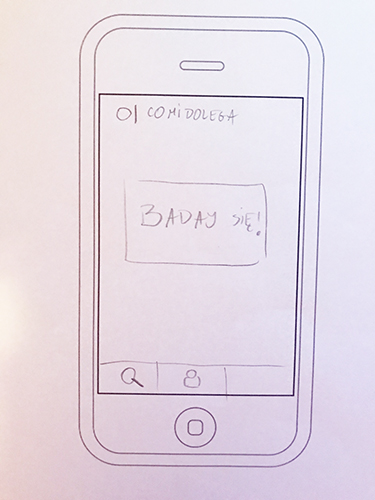 COMIDOLEGA
BADAY SIĘ!